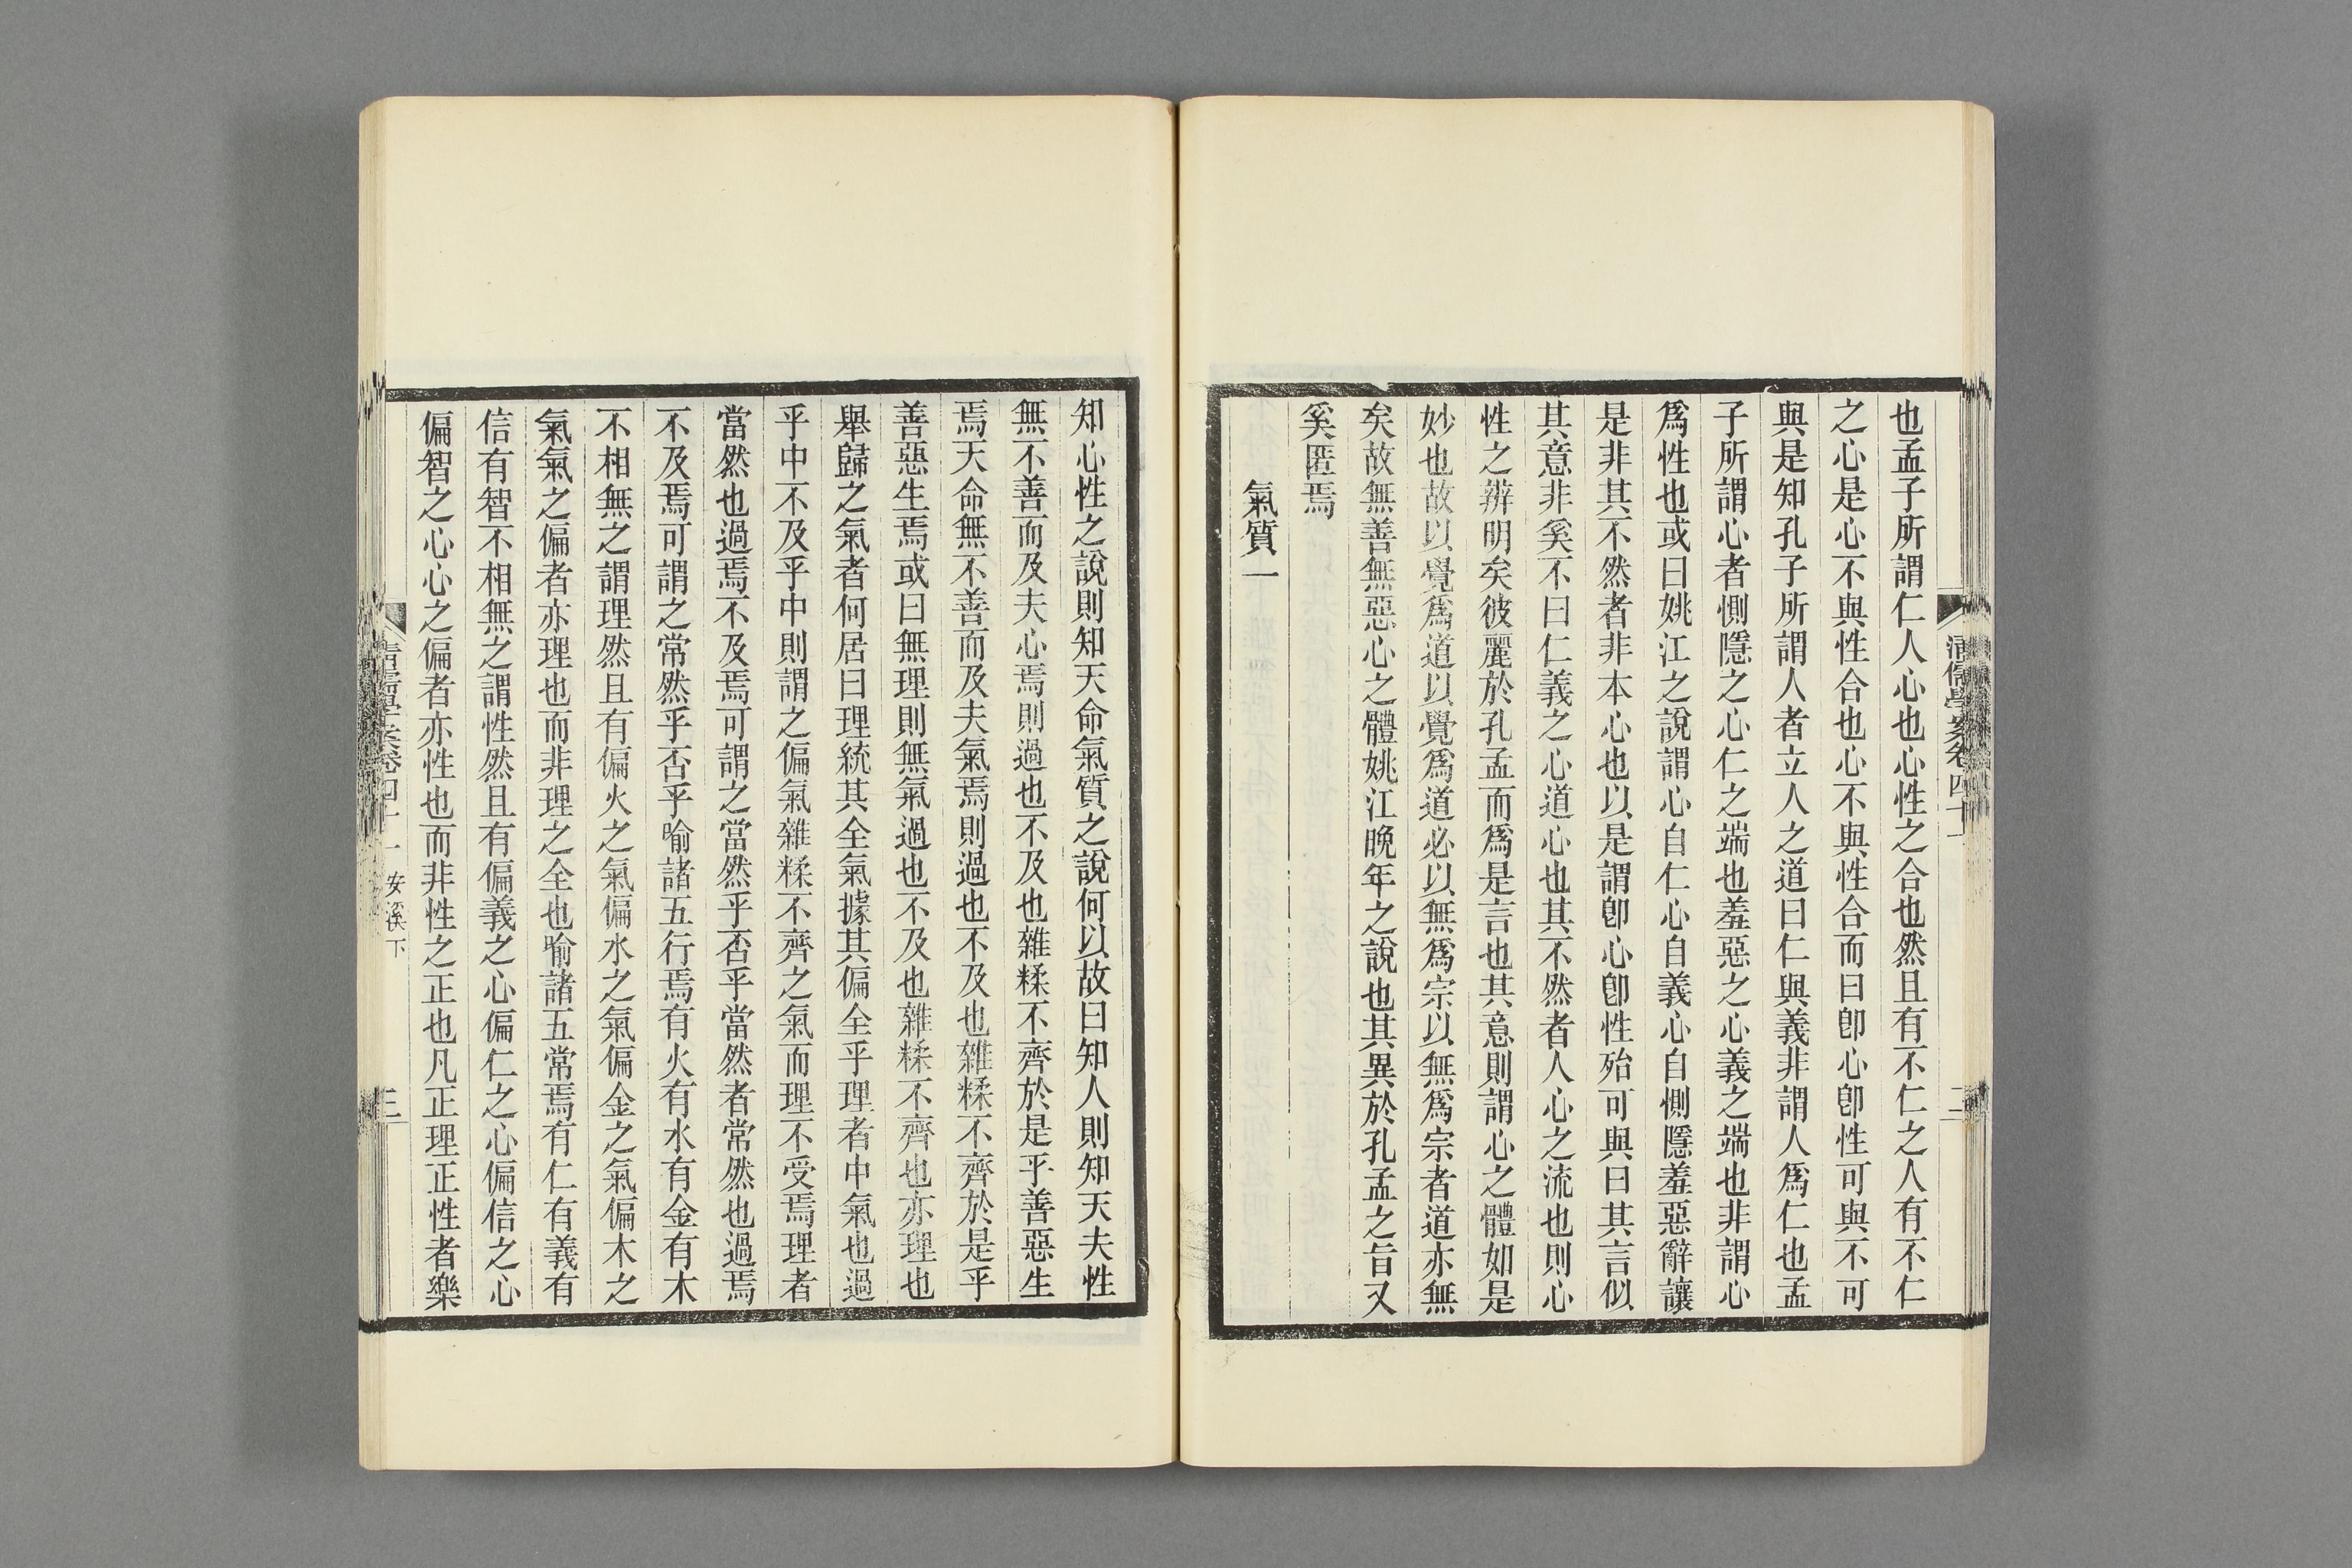 清儒學案卷四十一
二
也孟子所謂仁人心也心性之合也然且有不仁之人有不仁
之心是心不與性合也心不與性合而曰卽心卽性可與不可
與是知孔子所謂人者立人之道曰仁與義非謂人爲仁也孟
子所謂心者惻隱之心仁之端也羞惡之心義之端也非謂心
爲性也或曰姚江之說謂心自仁心自義心自惻隱羞惡辭讓
是非其不然者非本心也以是謂卽心卽性殆可與曰其言似
其意非奚不曰仁義之心道心也其不然者人心之流也則心
性之辨明矣彼麗於孔孟而爲是言也其意則謂心之體如是
妙也故以覺爲道以覺爲道必以無爲宗以無爲宗者道亦無
矣故無善無惡心之體姚江晚年之說也其異於孔孟之旨又
奚匿焉
氣質一
知心性之說則知天命氣質之說何以故曰知人則知天夫性
無不善而及夫心焉則過也不及也雜糅不齊於是乎善惡生
焉天命無不善而及夫氣焉則過也不及也雜糅不齊於是乎
善惡生焉或曰無理則無氣過也不及也雜糅不齊也亦理也
舉歸之氣者何居曰理統其全氣據其偏全乎理者中氣也過
乎中不及乎中則謂之偏氣雜糅不齊之氣而理不受焉理者
當然也過焉不及焉可謂之當然乎否乎當然者常然也過焉
不及焉可謂之常然乎否乎喻諸五行焉有火有水有金有木
不相無之謂理然且有偏火之氣偏水之氣偏金之氣偏木之
氣氣之偏者亦理也而非理之全也喻諸五常焉有仁有義有
信有智不相無之謂性然且有偏義之心偏仁之心偏信之心
偏智之心心之偏者亦性也而非性之正也凡正理正性者樂
清儒學案卷四十一 安溪下
三